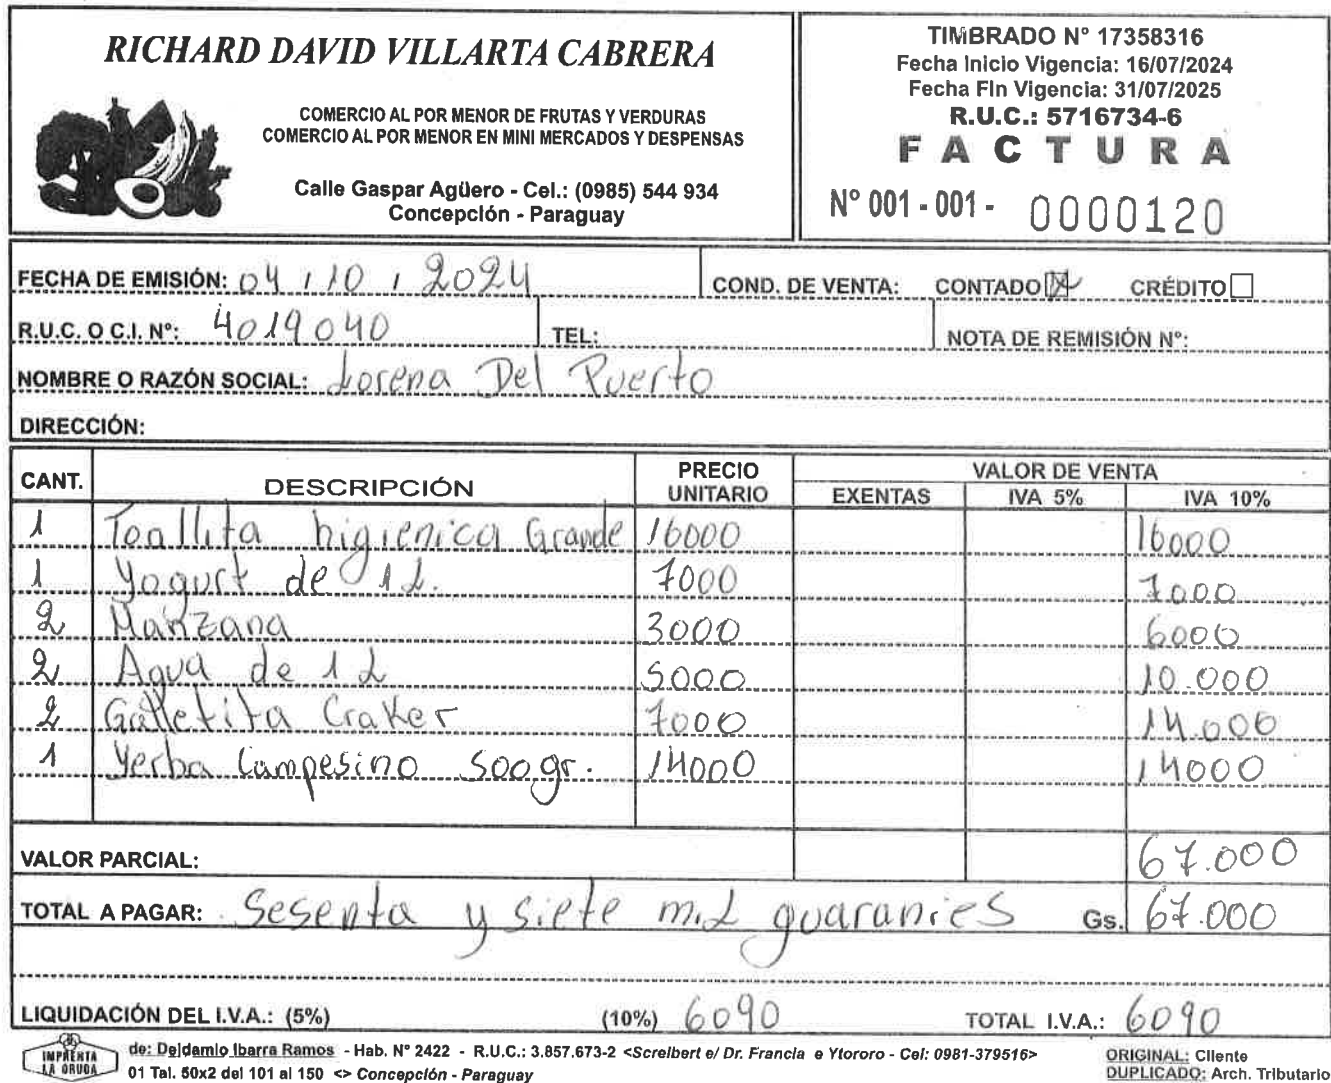 RICHARD DAVID VILLARTA CABRERA
COMERCIO AL POR MENOR DE FRUTAS Y VERDURAS
COMERCIO AL POR MENOR EN MINI MERCADOS Y DESPENSAS
Calle Gaspar Agüero - Cel.: (0985) 544 934
Concepción - Paraguay
TIMBRADO N° 17358316
Fecha Inicio Vigencia: 16/07/2024
Fecha Fin Vigencia: 31/07/2025
R.U.C.: 5716734-6
FACTURA
N° 001 - 001 - 0000120
FECHA DE EMISIÓN: 04 / 10 / 2024 COND. DE VENTA: CONTADO X CRÉDITO
R.U.C. O C.I. N°: 4019040 TEL: NOTA DE REMISIÓN N°:
NOMBRE O RAZÓN SOCIAL: Lorena Del Puerto
DIRECCIÓN:
CANT. DESCRIPCIÓN PRECIO UNITARIO VALOR DE VENTA
EXENTAS IVA 5% IVA 10%
1 Toallita higienica Grande 16000 16000
1 Yogurt de 1 L. 7000 7000
2 Manzana 3000 6000
2 Agua de 1 L 5000 10.000
2 Galletita Craker 7000 14.000
1 Yerba Campesino 500gr. 14000 14000
VALOR PARCIAL: 67.000
TOTAL A PAGAR: Sesenta y siete mil guaranies Gs. 67.000
LIQUIDACIÓN DEL I.V.A.: (5%) (10%) 6090 TOTAL I.V.A.: 6090
IMPRENTA LA ORUGA
de: Deidamio Ibarra Ramos - Hab. N° 2422 - R.U.C.: 3.857.673-2 <Screibert e/ Dr. Francia e Ytororo - Cel: 0981-379516>
01 Tal. 50x2 del 101 al 150 <> Concepción - Paraguay
ORIGINAL: Cliente
DUPLICADO: Arch. Tributario